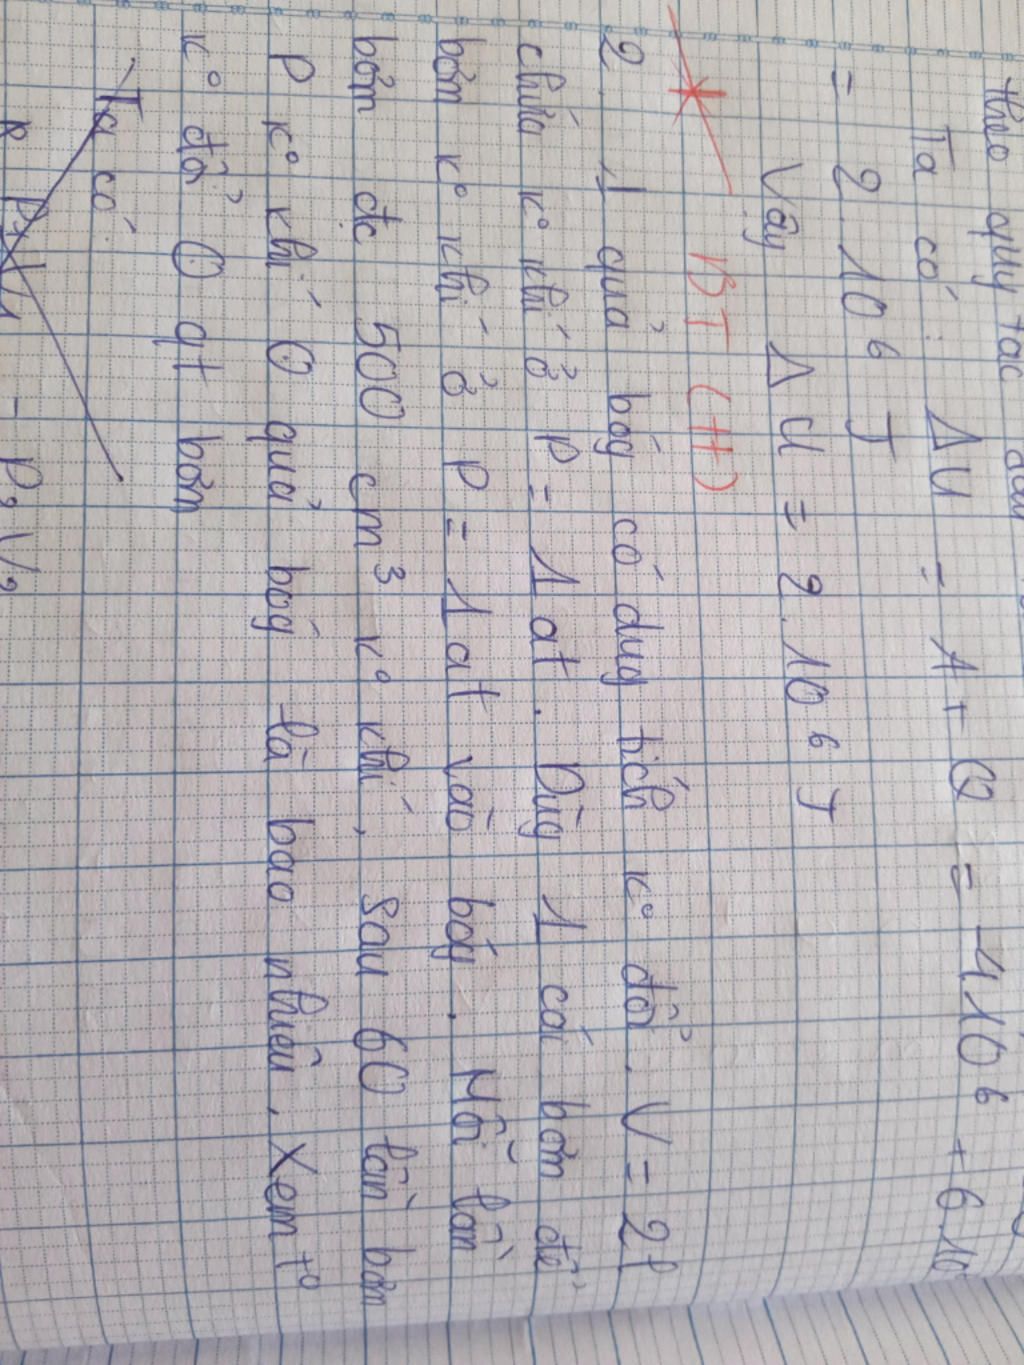 theo quy tắc dấu
Ta có: ΔU = A + Q = -4.10⁶ + 6.10
= 2.10⁶ J
Vậy ΔU = 2.10⁶ J
BT (H)
2. 1 quả bóg có dug tích k° đổi. V = 2l
chứa k° khí ở P = 1at. Dùg 1 cái bơm để
bơm k° khí ở P = 1at vào bóg. Mỗi lần
bơm đc 500 cm³ k° khí. Sau 60 lần bơm
P k° khí O quả bóg là bao nhiêu. Xem t°
k° đổi O qt bơm
Ta có:
- P₂V₂